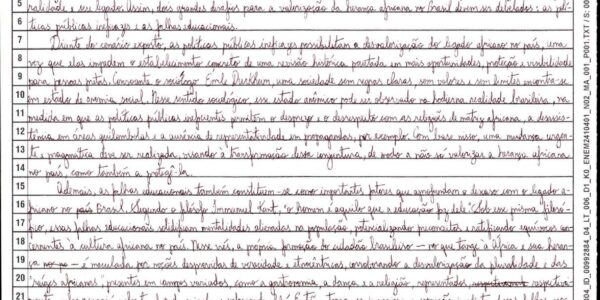 5 ralidades, seu legado. Assim, dois grandes desafios para a valorização da herança africana no Brasil devem ser debatidos: as polí-
6 ticas públicas ineficazes e as falhas educacionais.
7 Diante do cenário exposto, as políticas públicas ineficazes possibilitam a desvalorização do legado africano no país, uma
8 vez que elas impedem o estabelecimento concreto de uma revisão histórica pautada em mais oportunidades, proteção e visibilidade
9 para pessoas pretas. Consoante o sociólogo Émile Durkheim, uma sociedade sem regras claras, sem valores e sem limites encontra-se
10 em estado de anomia social. Nesse sentido sociológico, esse estado anômico pode ser observado na hodierna realidade brasileira, na
11 medida em que as políticas públicas ineficientes permitem o desprezo, o desrespeito com as religiões de matriz africana, a desassis-
12 tência em áreas quilombolas e a ausência de representatividade em propagandas, por exemplo. Com base nisso, uma mudança urgen-
13 te e pragmática deve ser realizada, visando à transformação dessa conjuntura, de modo a não só valorizar a herança africana
14 no país, como também a protegê-la.
15 Ademais, as falhas educacionais também constituem-se como importantes fatores que aprofundam o descaso com o legado a-
16 fricano no país Brasil. Segundo o filósofo Immanuel Kant, "o homem é aquilo que a educação faz dele". Sob esse prisma, filosó-
17 fico, essas falhas educacionais solidificam mentalidades alienadas na população, potencializando preconceitos e estereótipos con-
18 cernentes à cultura africana no país. Nesse viés, a própria formação do cidadão brasileiro - no que tange à África e sua heran-
19 ça - é maculada por noções desprovidas de veracidade e etnocêntricas, corroborando a desvalorização da pluralidade e das
20 "raízes africanas" presentes em campos variados como a gastronomia, a dança e a religião, representados, respectiva-
21
004_ID_00092884_04_LT_006_D1_K0_ENEM2410401_N02_MA_001_P001.TXT / S: 00